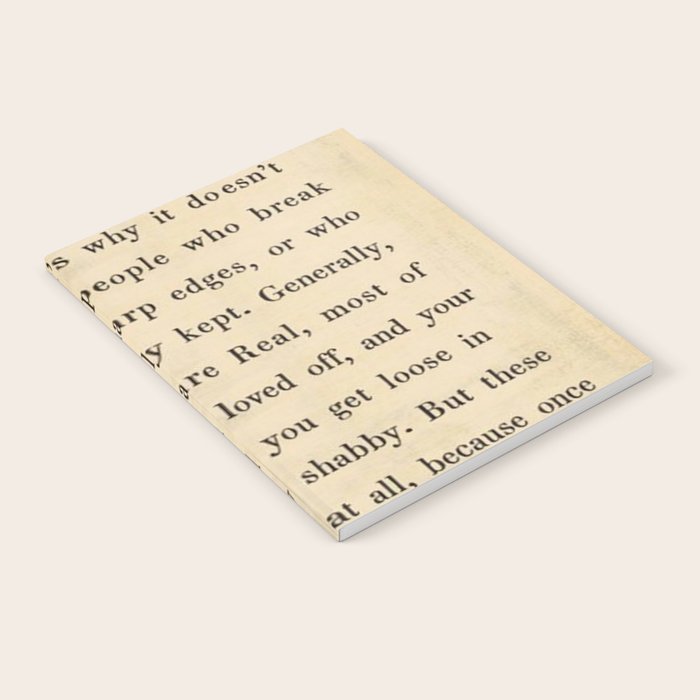 s why it doesn't
people who break
arp edges, or who
y kept. Generally,
are Real, most of
loved off, and your
you get loose in
shabby. But these
at all, because once